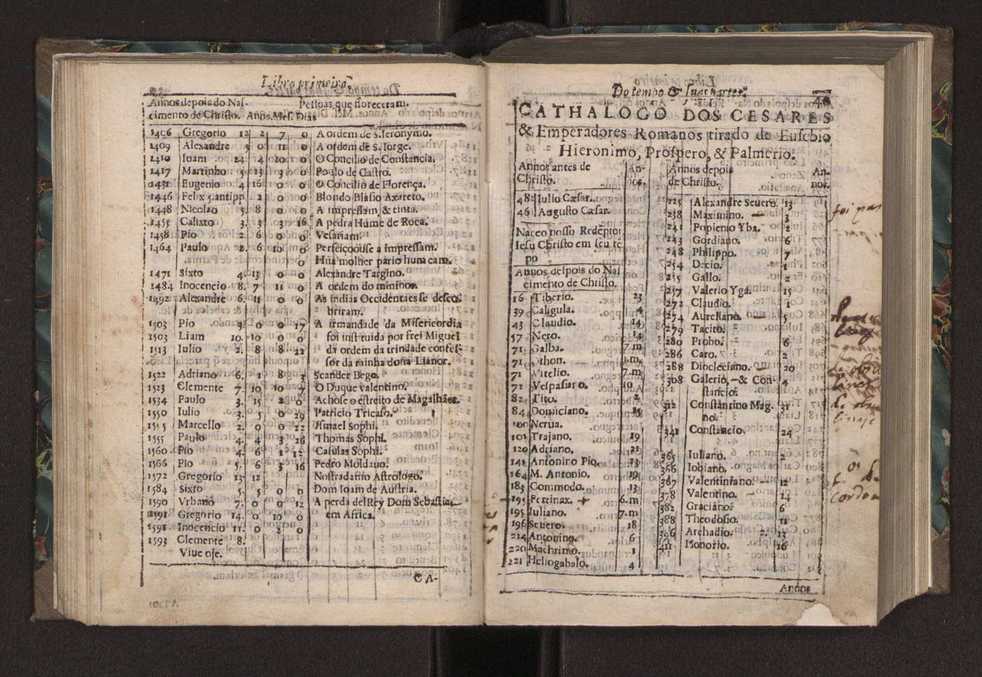 Libro primeiro.
Annos depois do Nas- Pessoas que floreceram.
cimento de Christo. Anos. Mes. Dias
1406 Gregorio 12 2 7 0 A ordem de S. Ieronymo.
1409 Alexandre 0 11 0 A ordem de S. Iorge.
1410 Ioam 24 4 10 0 O Concilio de Constancia.
1417 Martinho 13 13 0 Poulo de Castro.
1431 Eugenio 4 16 0 O Concilio de Florença.
1446 Felix 5 antipp 2 0 0 Blondo Blasio Axareto.
1448 Nicolao 5 8 0 0 A impressam, & tinta.
1455 Calixto 3 3 3 16 A pedra Hume de Roca.
1458 Pio 2 6 0 0 Vesariam.
1464 Paulo 2 6 10 0 Perfeiçoouse a impressam.
0 Hũa molher pario hum cam.
1471 Sixto 4 13 0 0 Alexandre Targino.
1484 Inocencio 8. 7 11 0 A ordem do minimos.
1492 Alexandre 6. 11 0 0 As indias Occidentaes se desco
briram.
1503 Pio 3 0 0 17 A irmandade da Misericordia
1503 Liam 10. 10 0 0 foi instituida por frei Miguel
1513 Iulio 2. 8 8 22 da ordem da trindade confes-
sor da rainha dona Lianor.
1522 Adriano 6. 1 8 Scander Bego.
1523 Clemente 7. 10 10 7 O Duque valentino.
1534 Paulo 3. 15 2 0 Achose o estreito de Magalhães.
1550 Iulio 3. 5 0 29 Patricio Tricaso.
1555 Marcello 2. 0 0 22 Ismael Sophi.
1555 Paulo 4. 4 26 Thomas Sophi.
1560 Pio 4. 6 12 Casulas Sophi.
1566 Pio 5. 6 3 16 Pedro Moldauo.
1572 Gregorio 13 12 Nostradamo Astrologo.
1584 Sixto 5. 5 0 0 Dom Ioam de Austria.
1590 Vrbano 7. 0 0 12 A perda del Rey Dom Sebastiam
1591 Gregorio 14 0 10 0 em Africa.
1591 Inocencio 11. 0 2 0
1593 Clemente 8.
Viue oje.
CA-
Do tempo & suas partes. 40
CATHALOGO DOS CESARES
& Emperadores Romanos tirado de Eusebio
Hieronimo, Prospero, & Palmerio.
Annos antes de An-
Christo. nos.
48 Iulio Cæsar.
46 Augusto Cæsar.
Naceo nosso Redẽptor
Iesu Christo em seu tẽ
po
Annos despois do Nas
cimento de Christo.
16 Tiberio. 23
39 Caligula. 4
43 Claudio. 14
57 Nero. 14
71 Galba. 7.m
71 Othon. .m
71 Vitelio. 7.m
72 Vespasiano. 10
82 Tito. 2
84 Domiciano. 15
100 Nerua.
101 Trajano. 19
120 Adriano. 21
141 Antonino Pio. 23
164 M. Antonio. 19
183 Commodo. 13
195 Pertinax. 6.m
195 Iuliano. 7.m
196 Seuero. 18
214 Antonino. 6
220 Machrimo. 1
221 Heliogabalo. 4
Annos depois An-
de Christo. nos.
225 Alexandre Seuero. 13
238 Maximino. 3
241 Popieno Yba. 2
243 Gordiano. 6
248 Philippo. 7
254 Decio. 1
255 Gallo. 2
257 Valerio Yga. 15
272 Claudio. 1
274 Aureliano.
279 Tacito.
280 Probo. 6
286 Caro. 2
288 Diocleciano. 20
308 Galerio, & Con- 4
stancio.
312 Constantino Mag- 31
no.
341 Constancio. 24
365 Iuliano. 2
366 Iobiano.
367 Valentiniano. 12
378 Valentino. 14
382 Graciano. 6
388 Theodosio. 11
396 Archadio. 13
411 Honorio. 16
Annos